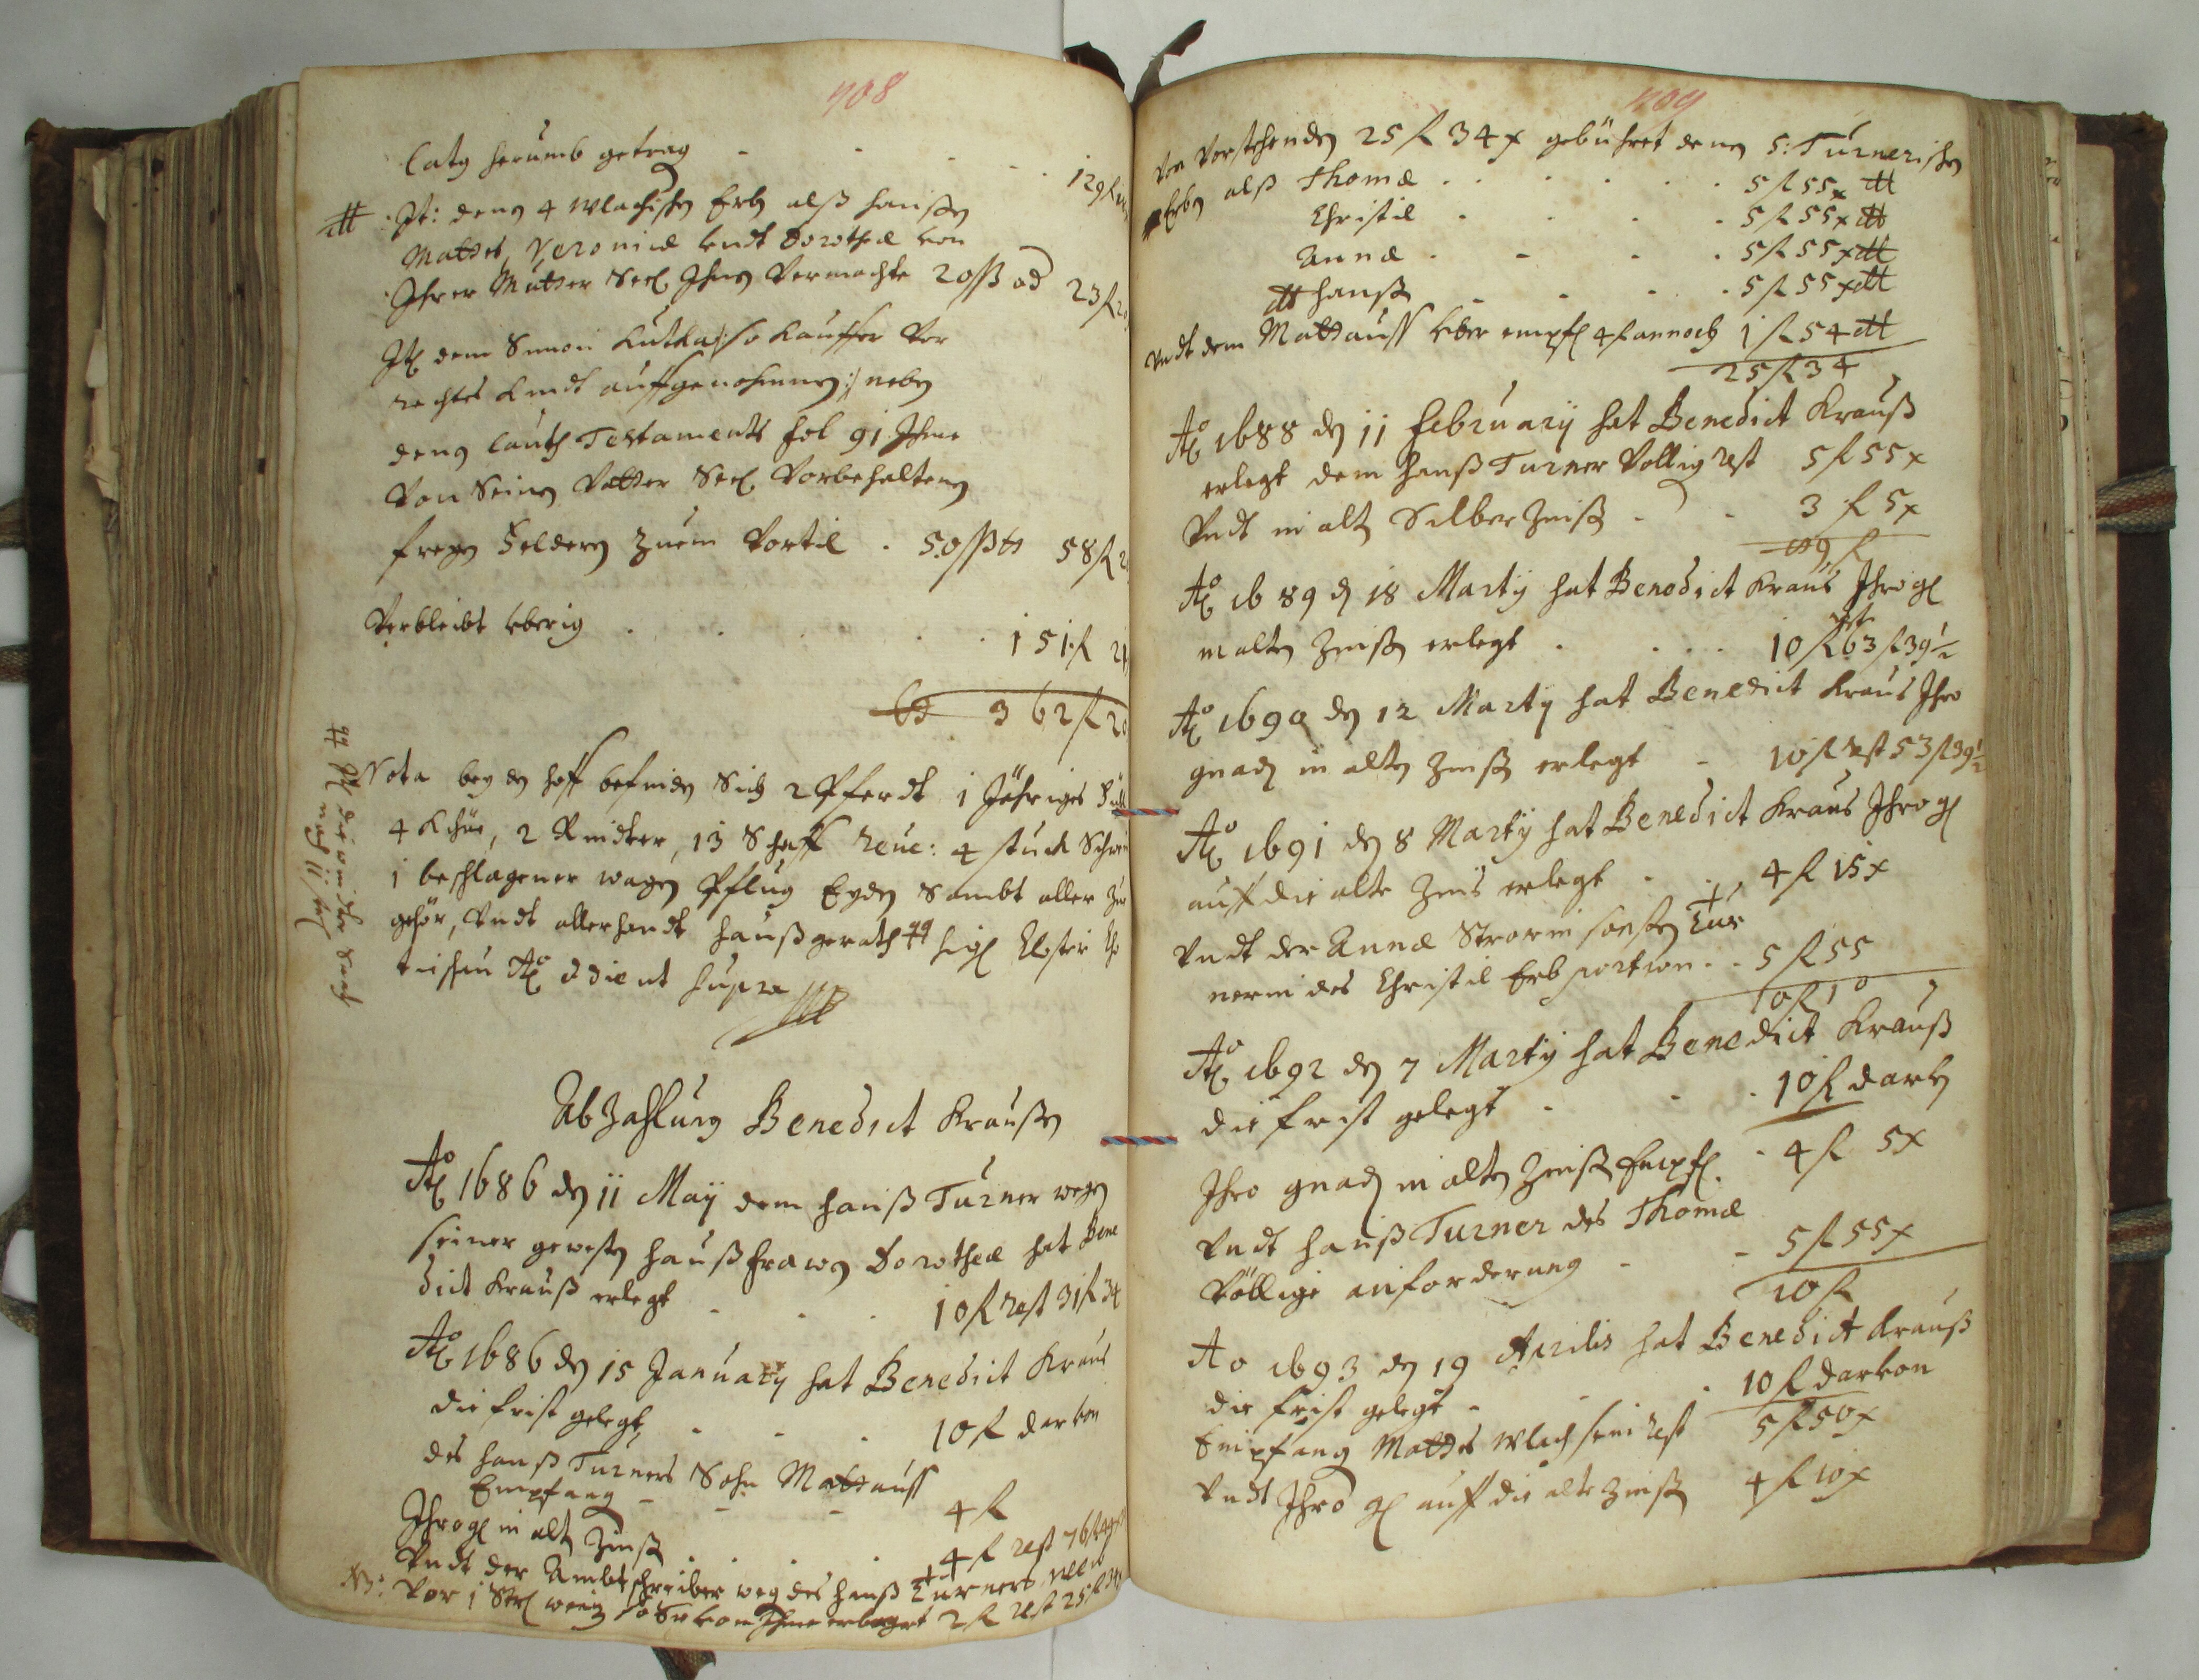 708
Latg herumb getrag - - - - 129 f
It: denen 4 Wlachischen Erben alß Hanßen
Mattes, Veronicæ undt Dorotheæ von
Ihrer Mutter Seel. Ihnen Vermachte 20 ßß od 23 f 20
It. dem Simon Kutka /: so Kauffer Vor
rechtes Kindt auffgenohmmen :/ neben
denen lauth Testaments fol 91 Ihme
Von Seinen Vatter Seel. Vorbehaltenen
freyen Feldern zuem Vortil . 50 ßß 58 f 2
Verbleibt überig . . . . 151 f 21
362 f 20
Nota bey den Hoff befinden Sich 2 Pferdt 1 Jähriges Füll
4 Kühe, 2 Rindter, 13 Schaff reue: 4 stuckh Schwein
1 beschlagener wagen Pflug Eyden Sambt aller Zue
gehör, Undt allerhandt Haußgerath
Ao. d die ut supra
Abzahlung Benedict Kraußen
Ao 1686 den 11 May dem Hanß Turner wegen
seiner gewesten Haußfrawen Dorotheæ hat Bene
dict Krauß erlegt - - . 10 f rest 31 f 34
Ao 1686 den 15 January hat Benedict Kraus
die frist gelegt - - - 10 f darvon
des Hanß Turners Sohn Mattauß
Empfang - - - 4 f
Ihro g in alt Zinß . . . 4 f rest 76 f 44
Undt der Ambtschreiber weg des Hanß Turners
NB: Vor 1 2 f rest 25 f 34
709
Von Vorstehenden 25 f 34 x gebühret denen 5: Turnerischen
Erben alß Thomæ . . . . . 5 f 55 x
Christil . . . 5 f 55 x
Annæ . - . . 5 f 55 x
Hanß - - . 5 f 55 x
Undt dem Mattauß über empf 4 f annoch 1 f 54
25 f 34
Ao 1688 den 11 February hat Benedict Krauß
erlegt dem Hanß Turner Völlig rest 5 f 55 x
Undt in alt Silber Zinß . - 3 f 5 x
9 f
Ao 1689 d 18 Marty hat Benedict Kraus Ihro g
in alten Zinß erlegt . . . . 10 f rest 63 f 39 1/2
Ao 1690 den 12 Marty hat Benedict Kraus Ihro
gnad in alten Zinß erlegt - 10 f rest 53 f 39 1/2
Ao 1691 den 8 Marty hat Benedict Kraus Ihro g
auff die alte Zins erlegt . . 4 f 15 x
Undt der Annæ Strorin sonsten Tur
nerin des Christil Erb portion . . 5 f 55
10 f 10
Ao 1692 den 7 Marty hat Benedict Krauß
die frist gelegt . - . 10 f darv
Ihro gnad in alten Zinß Empf. . 4 f 5 x
Undt Hanß Turner des Thomæ
Völlige anforderung - - 5 f 55 x
10 f
Ao 1693 den 19 Aprilis hat Benedict Krauß
die frist gelegt - - . 10 f darvon
Empfang Mattes Wlach sein rest 5 f 50 x
Undt Ihro g auff die alte Zinß 4 f 10 x